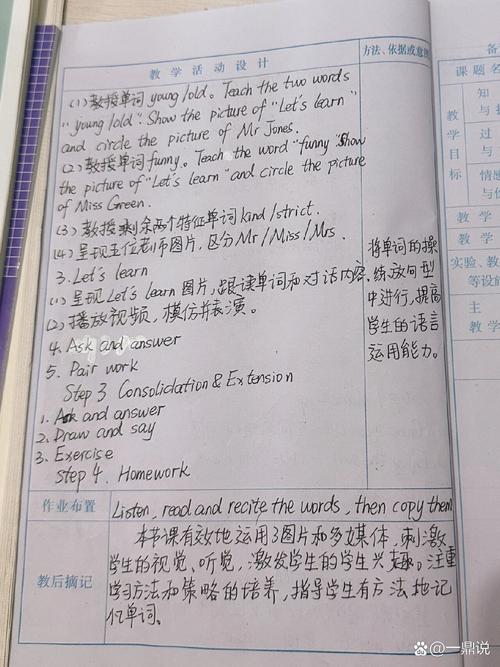 教学活动设计
方法、依据或意图
(1) 教授单词 young/old。Teach the two words
"young/old". Show the picture of "Let's learn"
and circle the picture of Mr Jones.
(2) 教授单词 funny。Teach the word "funny" Show
the picture of "Let's learn" and circle the picture
of Miss Green.
(3) 教授剩余两个特征单词 kind/strict.
(4) 呈现五位老师图片,区分 Mr/Miss/Mrs.
3. Let's learn
(1) 呈现 Let's learn 图片,跟读单词和对话内容.
(2) 播放视频,模仿并表演。
4. Ask and answer
5. Pair work
Step 3 Consolidation & Extension
1. Ask and answer
2. Draw and say
3. Exercise
Step 4. Homework
将单词的操
练放向句型
中进行,提高
学生的语言
运用能力。
作业布置
Listen, read and recite the words, then copy them
教后摘记
本节课有效地运用了图片和多媒体,刺激
学生的视觉、听觉,激发学生的学生兴趣。注重
学习方法和策略的培养,指导学生有方法地记
忆单词。
备
课题名
教学目标
知
与
过
与
情感
与
教学
教学
实验、教
等设施
主
教学
百家号/一鼎说